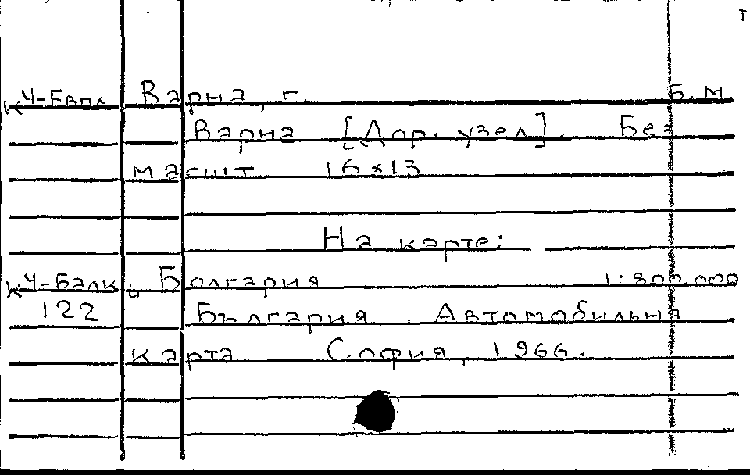 Варна, г. Б. м.
Варна [Дор. узел]. Без
масшт. 16x13
На карте:
К 4-Балк. Болгария 1:800.000
122 България. Автомобилна
карта София, 1966.